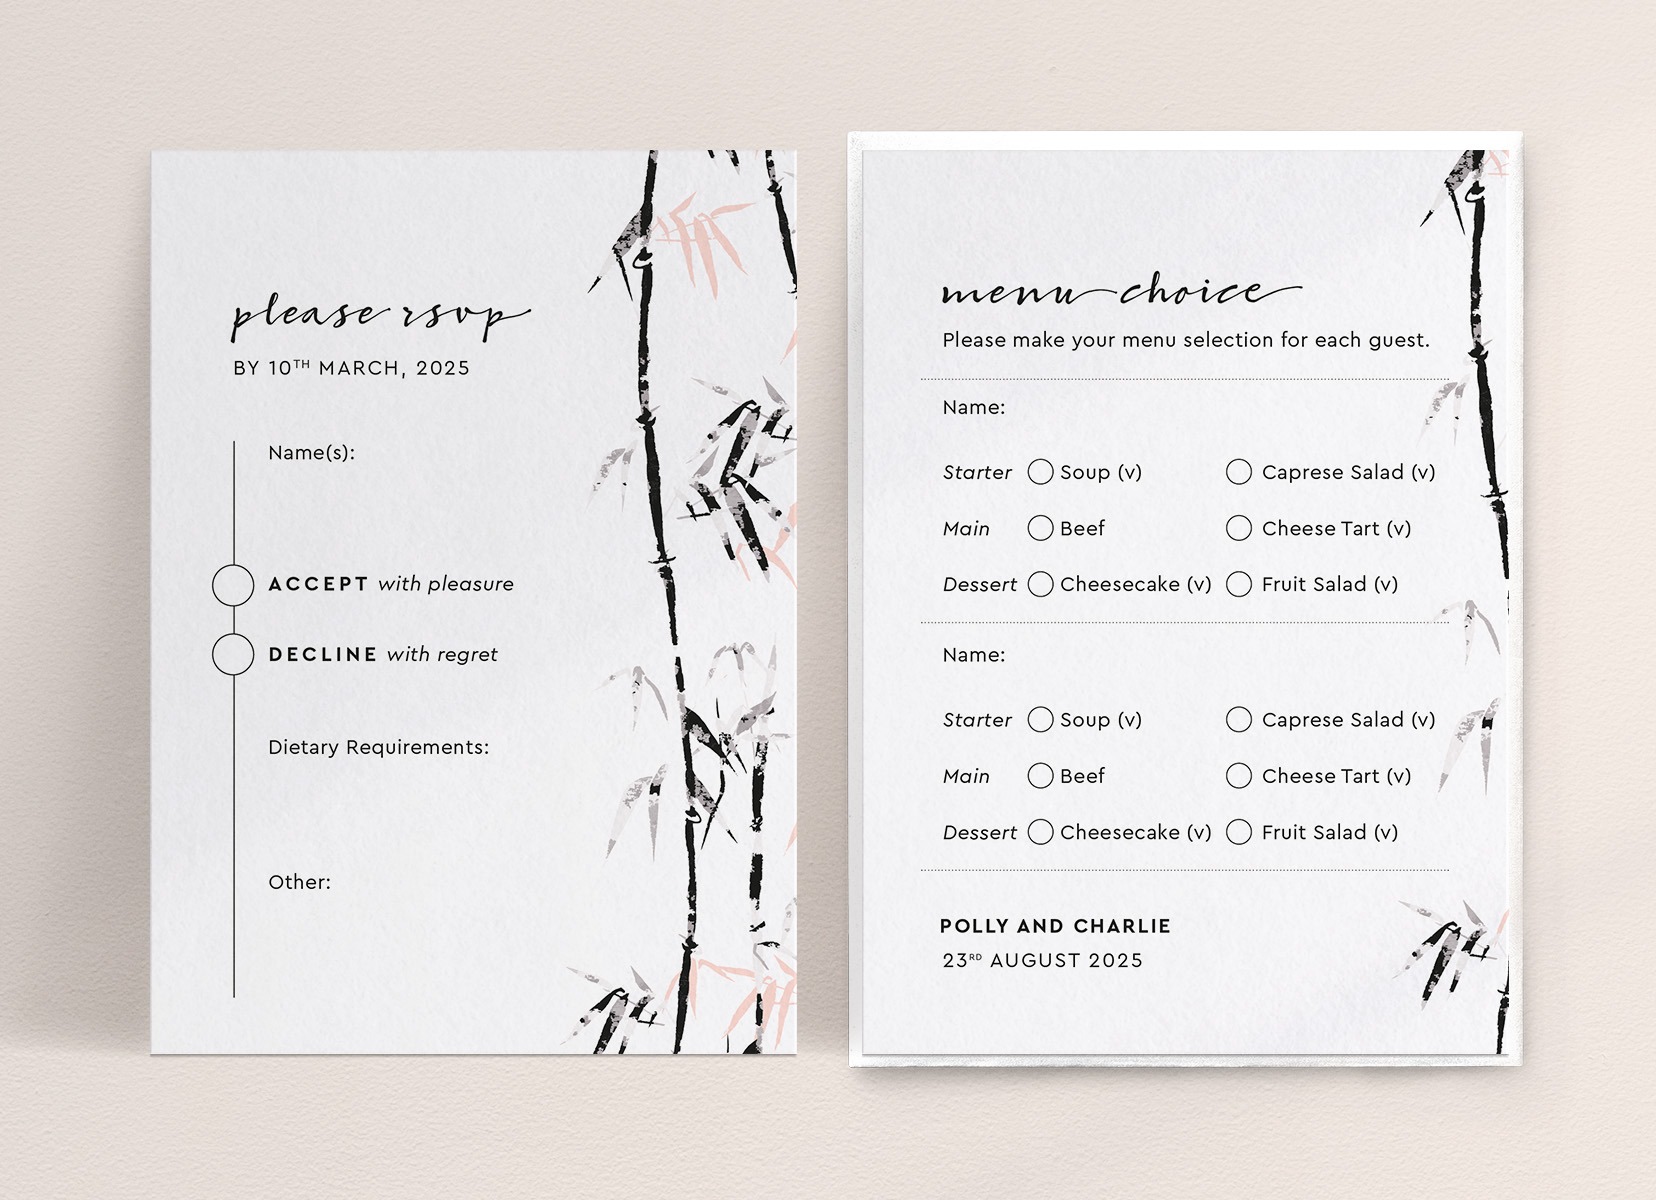 please rsvp
BY 10TH MARCH, 2025
Name(s):
ACCEPT with pleasure
DECLINE with regret
Dietary Requirements:
Other:
menu choice
Please make your menu selection for each guest.
Name:
Starter Soup (v) Caprese Salad (v)
Main Beef Cheese Tart (v)
Dessert Cheesecake (v) Fruit Salad (v)
Name:
Starter Soup (v) Caprese Salad (v)
Main Beef Cheese Tart (v)
Dessert Cheesecake (v) Fruit Salad (v)
POLLY AND CHARLIE
23RD AUGUST 2025